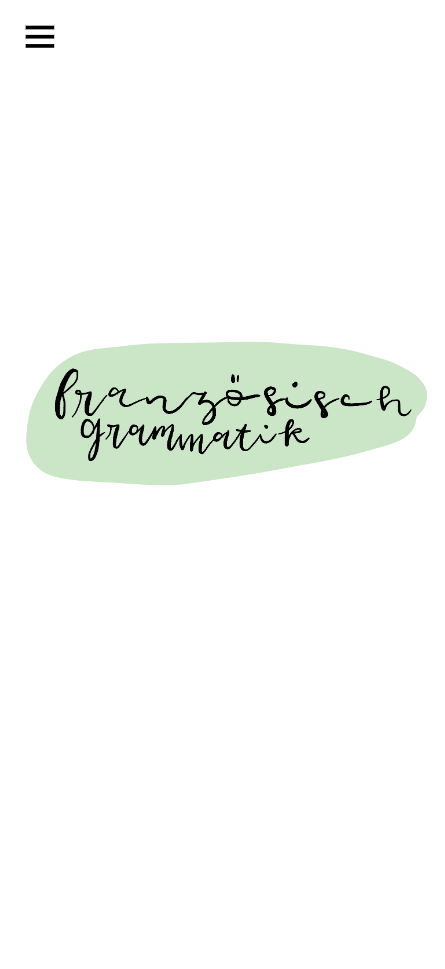 französisch
grammatik